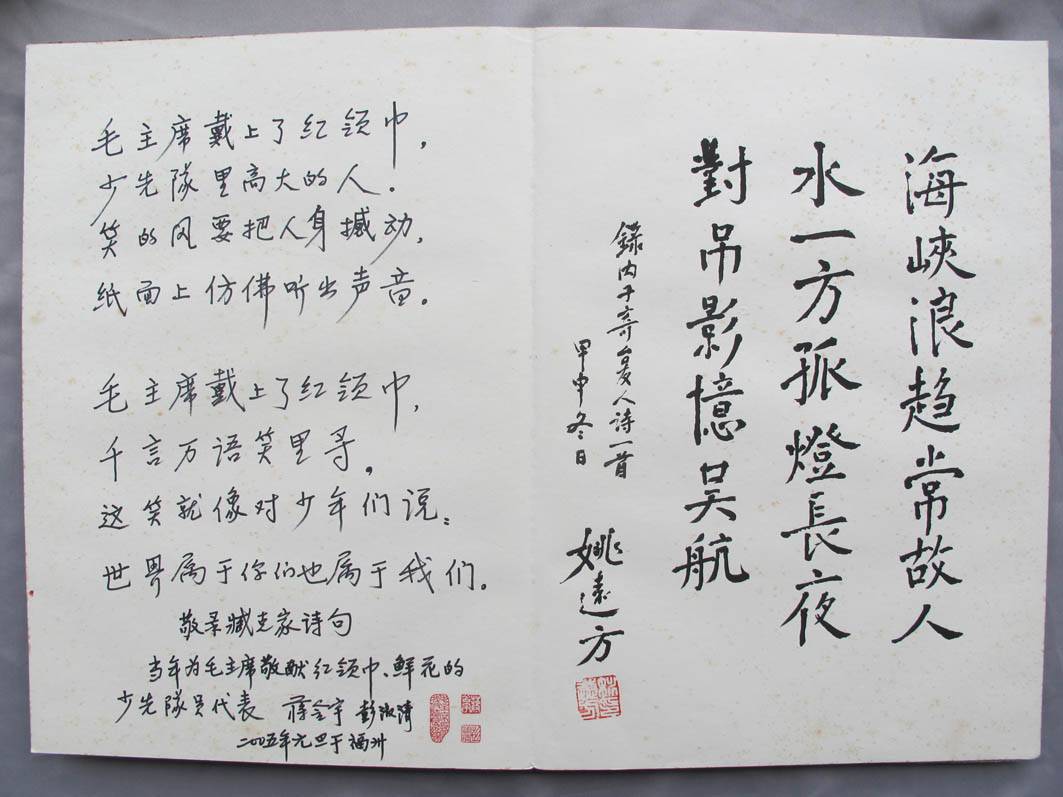 海峽浪趋常故人
水一方孤燈長夜
對吊影憶吴航
錄内子寄台友人诗一首
甲申冬日
姚远方
毛主席戴上了红领巾，
少先隊里高大的人．
笑的风要把人身撼动，
纸面上仿佛听出声音。
毛主席戴上了红领巾，
千言万语笑里寻。
这笑就像对少年们说：
世界属于你们也属于我们。
敬录臧克家诗句
当年为毛主席敬献红领巾、鲜花的
少先隊员代表 蒋含宇 彭淑清
二〇〇五年元旦于福州